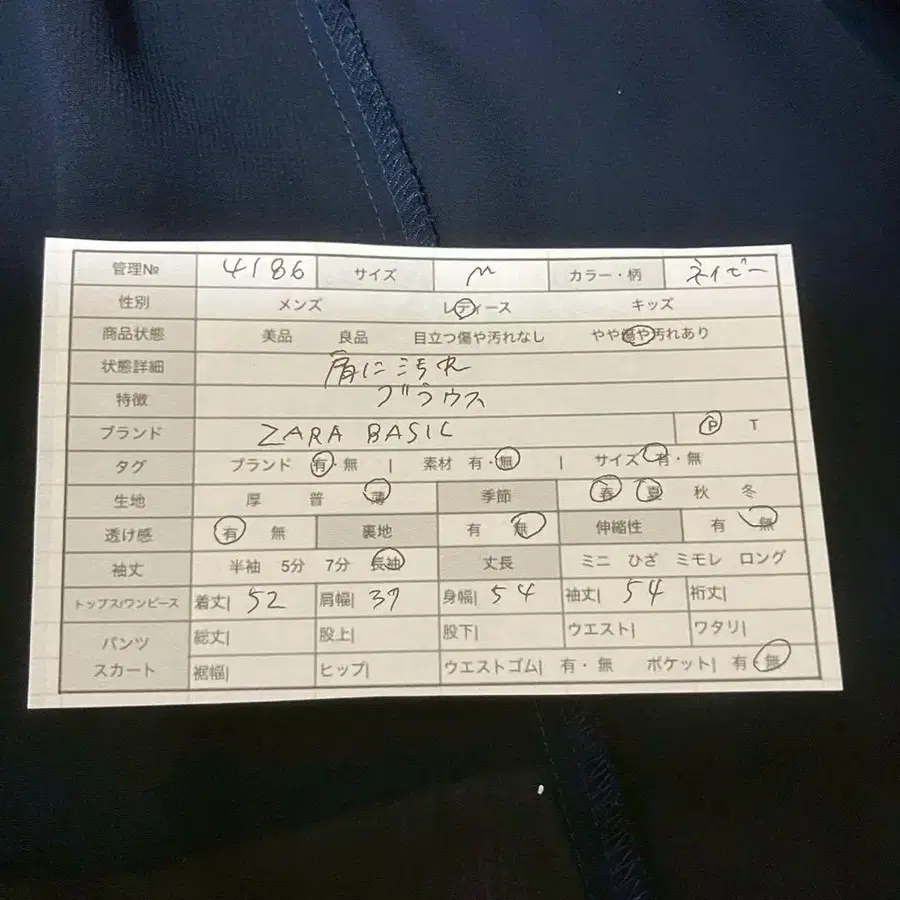 管理№ 4186 サイズ M カラー・柄 ネイビー
性別 メンズ レディース キッズ
商品状態 美品 良品 目立つ傷や汚れなし やや傷や汚れあり
状態詳細 肩に汚れ
特徴 ブラウス
ブランド ZARA BASIC P T
タグ ブランド 有・無 | 素材 有・無 | サイズ 有・無
生地 厚 普 薄 季節 春 夏 秋 冬
透け感 有 無 裏地 有 無 伸縮性 有 無
袖丈 半袖 5分 7分 長袖 丈長 ミニ ひざ ミモレ ロング
トップス/ワンピース 着丈| 52 肩幅| 37 身幅| 54 袖丈| 54 裄丈|
パンツ スカート 総丈| 股上| 股下| ウエスト| ワタリ|
裾幅| ヒップ| ウエストゴム| 有・無 ポケット| 有・無